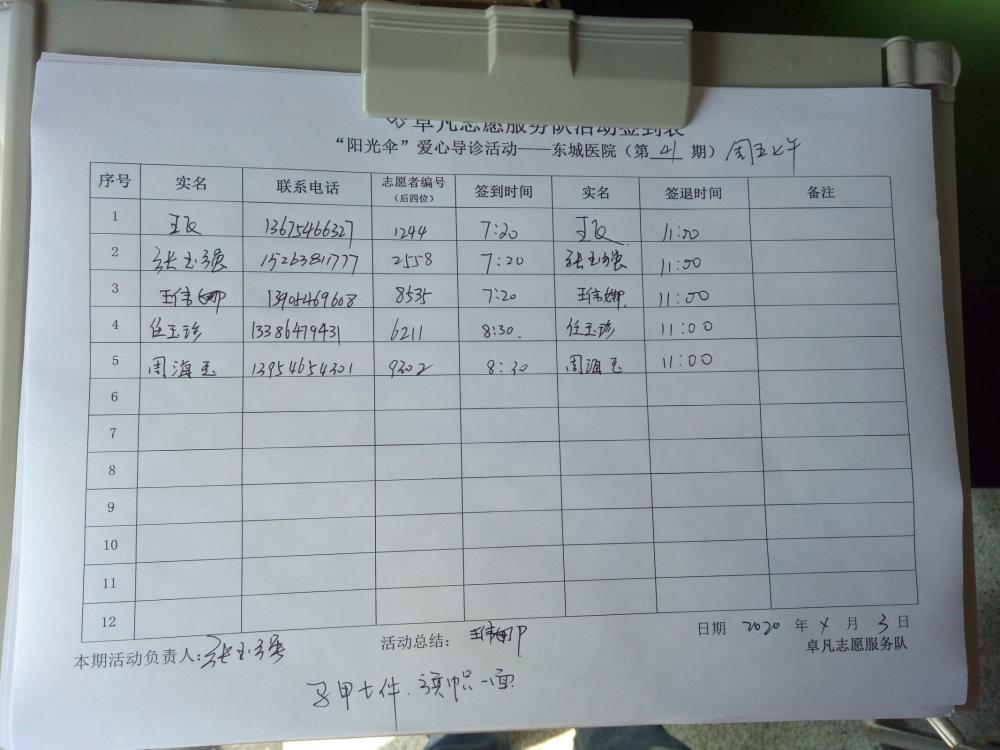 卓凡志愿服务队活动签到表
“阳光伞”爱心导诊活动——东城医院（第 41 期）周五上午
序号 实名 联系电话 志愿者编号（后四位） 签到时间 实名 签退时间 备注
1 13675466327 1244 7:20 11:00
2 张玉强 15263811777 2558 7:20 张玉强 11:00
3 王伟娜 13905469608 8535 7:20 王伟娜 11:00
4 任玉珍 13386479431 6211 8:30. 任玉珍 11:00
5 周海玉 13954654301 9302 8:30 周海玉 11:00
6
7
8
9
10
11
12
本期活动负责人:张玉强 活动总结: 王伟娜 日期 2020 年 4 月 3 日
卓凡志愿服务队
马甲七件.旗帜一面